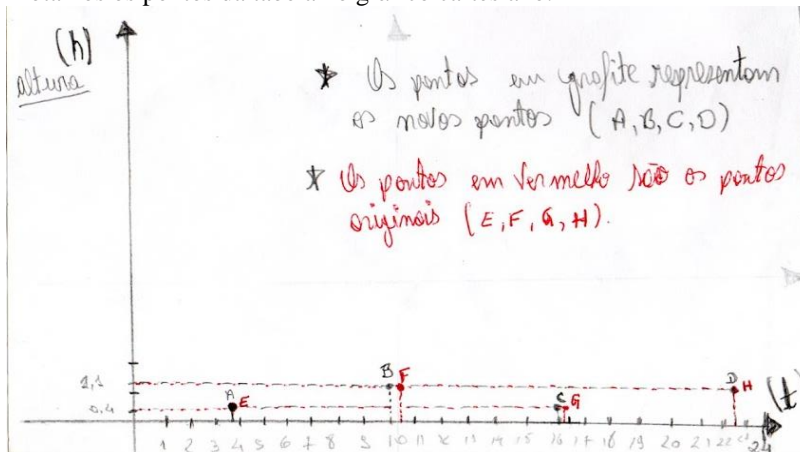 (h)
altura
* Os pontos em grafite representam
os novos pontos (A,B,C,D)
* Os pontos em vermelho são os pontos
originais (E,F,G,H).
B F
1,1
D H
(t)
A E
C G
0,4
1 2 3 4 5 6 7 8 9 10 11 12 13 14 15 16 17 18 19 20 21 22 23 24